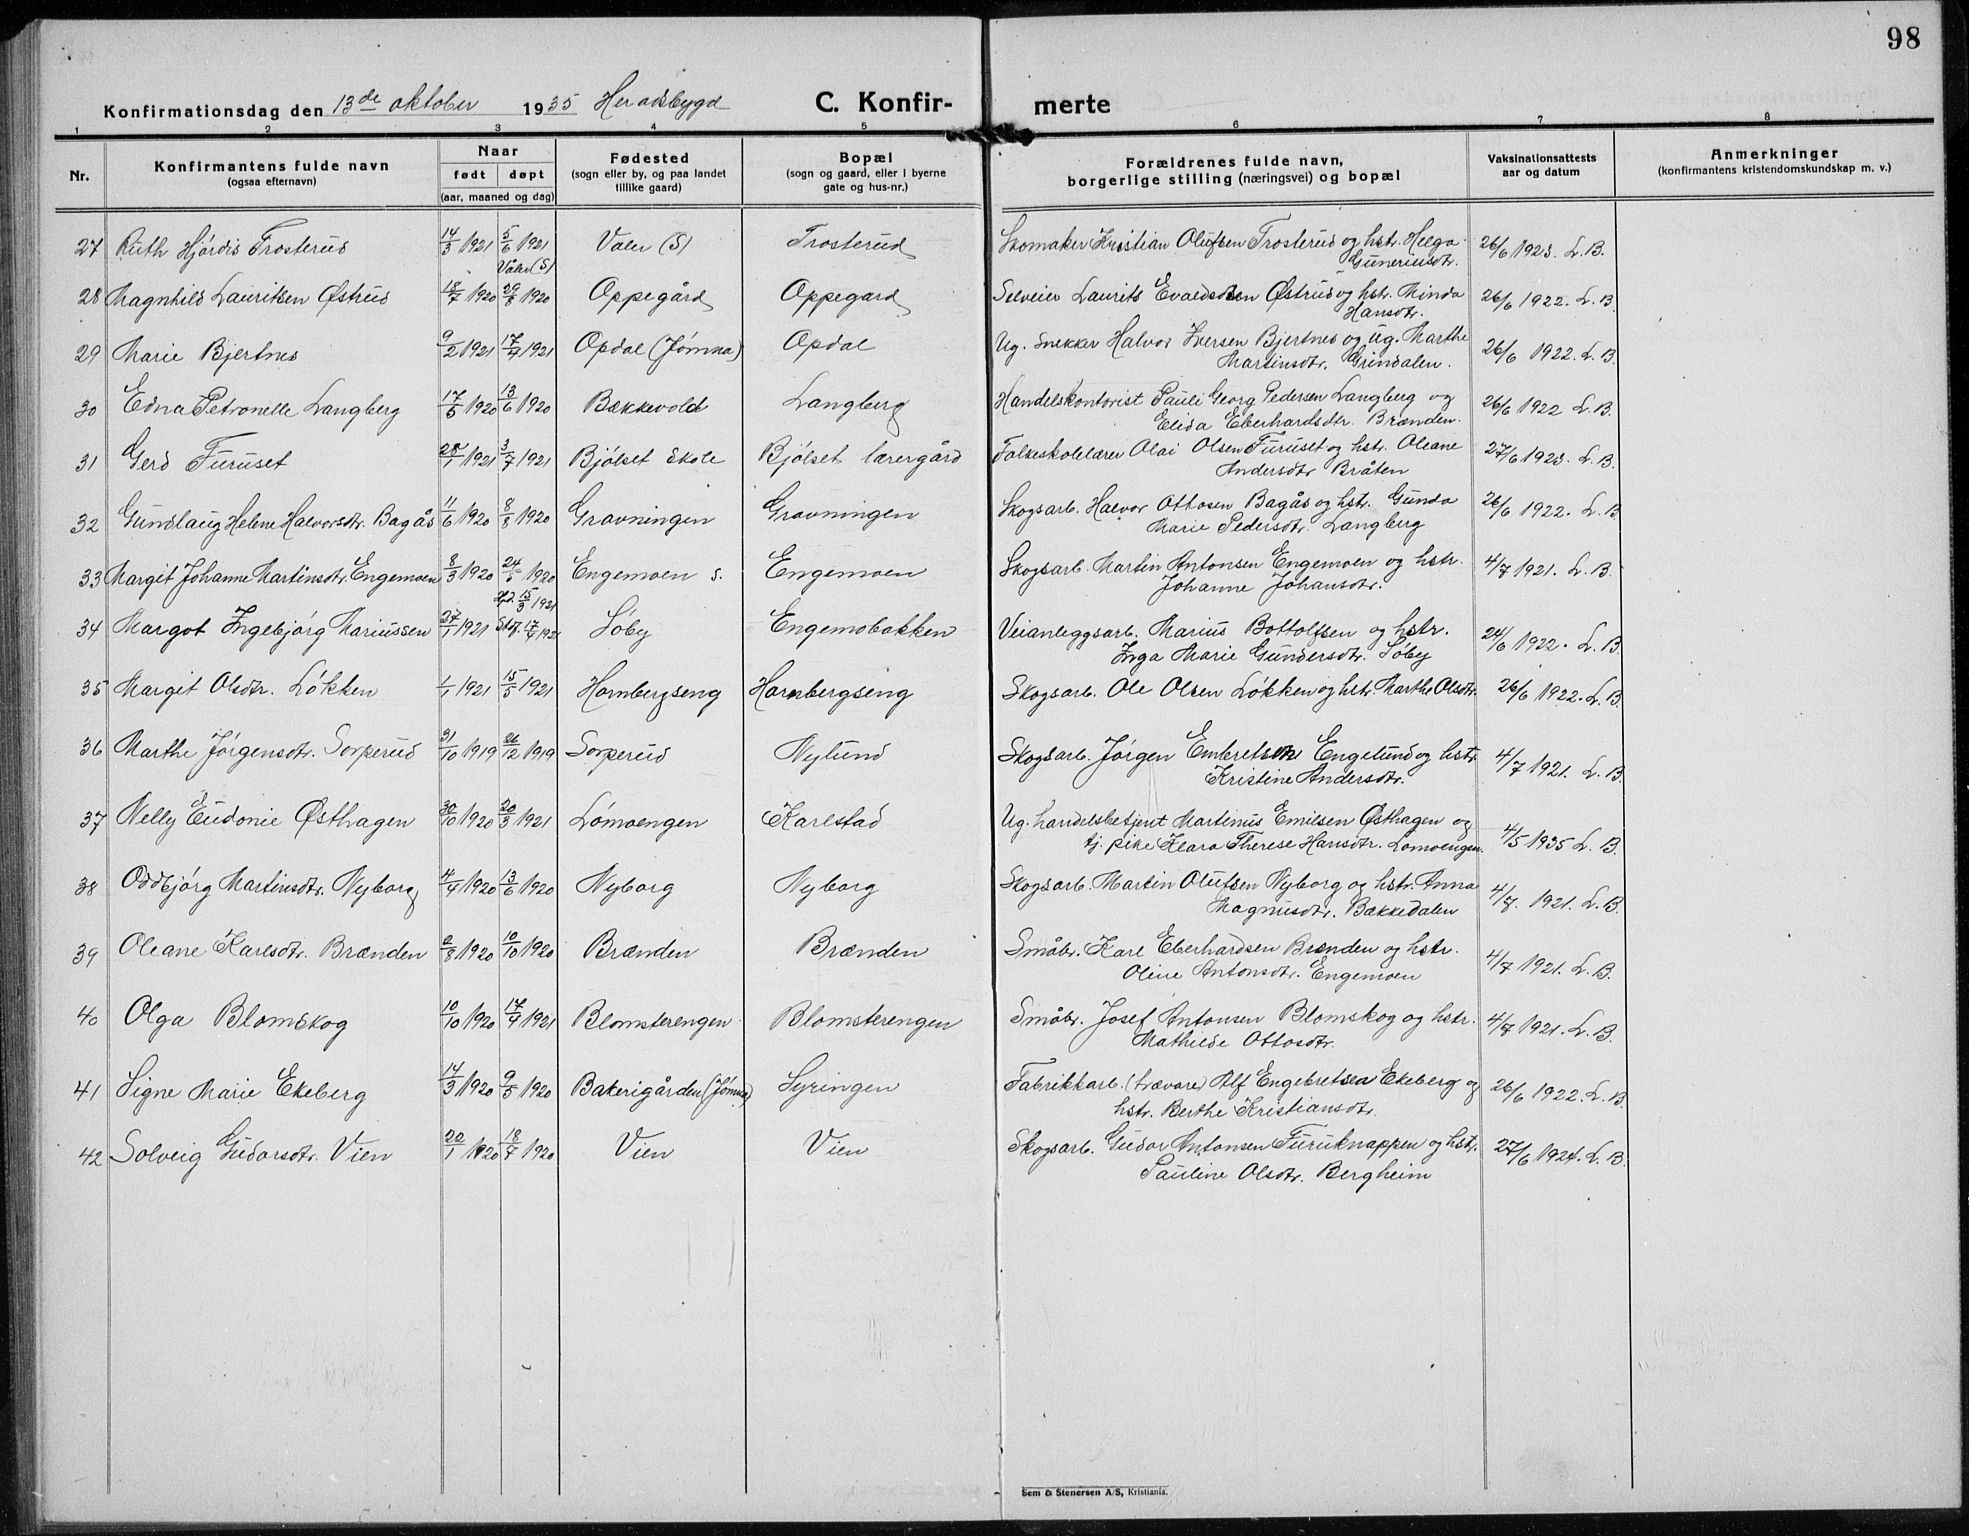 98
Konfirmationsdag den 13de oktober 1935 Heradsbygd C. Konfir- merte
1 2 3 4 5 6 7 8
Nr. Konfirmantens fulde navn (ogsaa efternavn) Naar født døpt (aar, maaned og dag) Fødested (sogn eller by, og paa landet tillike gaard) Bopæl (sogn og gaard, eller i byerne gate og hus-nr.) Forældrenes fulde navn, borgerlige stilling (næringsvei) og bopæl Vaksinationsattests aar og datum Anmerkninger (konfirmantens kristendomskundskap m. v.)
27 Ruth Hjördis Trosterud 14/3 1921 5/6 1921 Våler (S) Trosterud Skomaker Kristian Olufsen Trosterud og hstr. Helga 26/6 1923. L.B.
Våler (S) Guneriusdtr.
28 Magnhild Lauritsen Østrud 18/7 1920 29/8 1920 Oppegård Oppegard Selveier Laurits Evaldsen Østrud og hstr. Minda 26/6 1922. L.B.
Hansdtr.
29 Marie Bjertnes 9/2 1921 17/4 1921 Opdal (Jømna) Opdal Ug. Snekker Halvor Iversen Bjertnes og ug. Marthe 26/6 1922. L.B.
Martinsdtr. Grindalen.
30 Edna Petronelle Langberg 17/5 1920 13/6 1920 Bækkevold Langberg Handelskontorist Pauli Georg Pedersen Langberg og 26/6 1922 L.B.
Elida Eberhardsdtr. Brænden.
31 Gerd Furuset 28/1 1921 3/7 1921 Bjölset Skole Bjölset lærergård Folkeskolelærer Olai Olsen Furuset og hstr. Oleane 27/6 1923. L.B.
Andersdtr Bråten
32 Gundlaug Helene Halvorsdtr. Bagås 11/6 1920 8/8 1920 Gravningen Gravningen Skogsarb. Halvor Ottosen Bagås og hstr. Gunda 26/6 1922. L.B.
Marie Pedersdtr. Langberg
33 Margit Johanne Martinsdtr. Engemoen 8/3 1920 24/5 1920 Engemoen S. Engemoen Skogsarb. Martin Antonsen Engemoen og hstr. 4/7 1921. L.B.
Johanne Johansdtr.
34 Margot Ingebjörg Mariussen 27/1 1921 Hjd. 15/3 1921 Söby Engemobakken Veianleggsarb. Marius Bottolfsen og hstr. 24/6 1922. L.B.
Inga Marie Gundersdtr. Söby
35 Margit Olsdtr. Lökken 1/1 1921 15/5 1921 Hornbergseng Hornbergseng Skogsarb. Ole Olsen Lökken og hstr. Marthe Olsdtr. 26/6 1922. L.B.
36 Marthe Jörgensdtr. Sorperud 31/10 1919 26/12 1919 Sorperud Nylund Skogsarb. Jörgen Embretsen Engelund og hstr 4/7 1921. L.B.
Kristine Andersdtr.
37 Nelly Eudonie Østhagen 30/10 1920 20/3 1921 Lömoengen Karlstad Ug. handelsbetjent Martinus Emilsen Østhagen og 4/5 1935 L.B.
tj. pike Klara Therese Hansdtr. Lömoengen.
38 Oddbjörg Martinsdtr. Nyborg 4/4 1920 13/6 1920 Nyborg Nyborg Skogsarb. Martin Olufsen Nyborg og hstr. Anna 4/7. 1921. L.B.
Magnusdtr. Bækkedalen
39 Oleane Karlsdtr. Brænden 2/8 1920 10/10 1920 Brænden Brænden Småbr. Karl Eberhardsen Brænden og hstr. 4/7 1921. L.B.
Oline Antonsdtr. Engemoen
40 Olga Blomskog 10/10 1920 17/4 1921 Blomsterengen Blomsterengen Småbr. Josef Antonsen Blomskog og hstr. 4/7 1921. L.B.
Mathilde Ottosdtr.
41 Signe Marie Ekeberg 14/3 1920 9/5 1920 Bakerigården (Jömna) Syringen Fabrikkarb. (trævare) Alf Engebretsen Ekeberg og 26/6 1922. L.B.
hstr. Berthe Kristiansdtr.
42 Solveig Gudarsdtr. Vien 20/1 1920 18/7 1920 Vien Vien Skogsarb. Gudar Antonsen Furuknappen og hstr. 27/6 1924. L.B.
Pauline Olsdtr. Bergheim
Sem & Stenersen A/S, Kristiania.